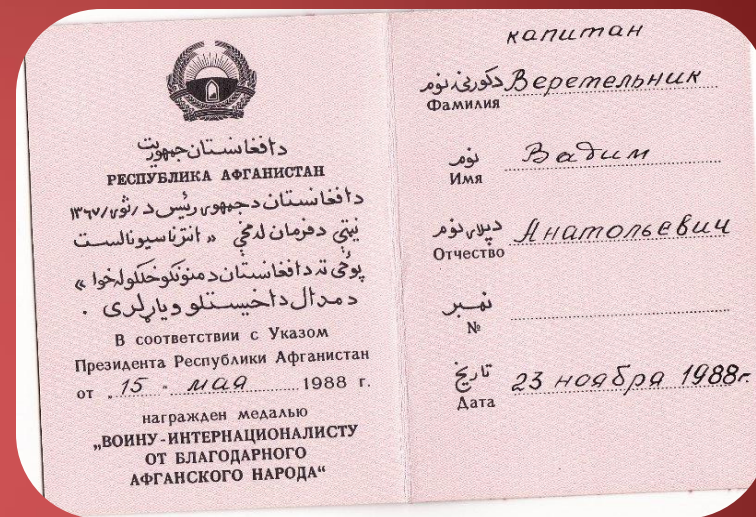 دافغانستان جمهوریت
РЕСПУБЛИКА АФГАНИСТАН
دافغانستان دجمهوری رئیس د /ثور/ ۱۳۶۷
نیټې دفرمان له مخې « انترناسیونالست
پوځی ته دافغانستان د منونکو خلکو له خوا »
د مدال داخیستلو ویاړ لری .
В соответствии с Указом
Президента Республики Афганистан
от „ 15 " мая 1988 г.
награжден медалью
„ВОИНУ-ИНТЕРНАЦИОНАЛИСТУ
ОТ БЛАГОДАРНОГО
АФГАНСКОГО НАРОДА“
капитан
دکورنۍ نوم Веретельник
Фамилия
نوم Вадим
Имя
دپلار نوم Анатольевич
Отчество
نمبر
№
تاریخ 23 ноября 1988г.
Дата